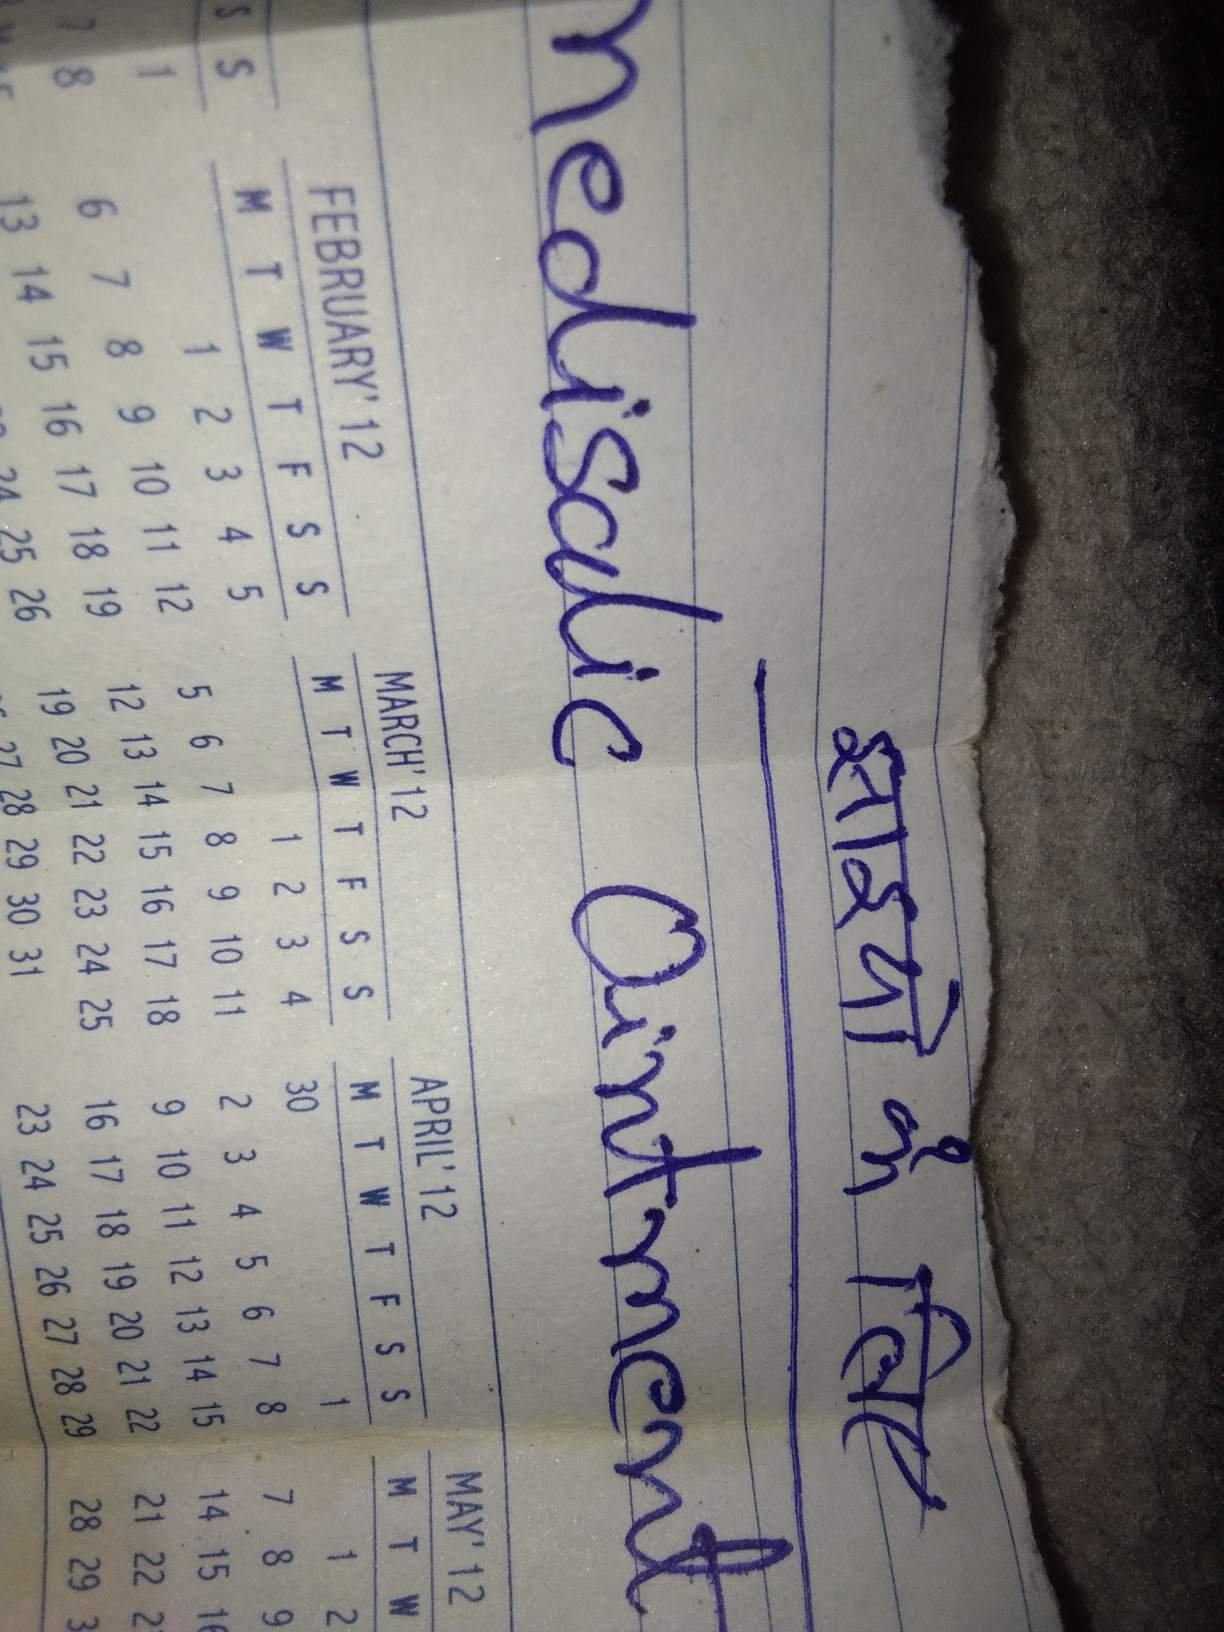 झाइयो के लिए
medisalic Ointment
FEBRUARY'12
M T W T F S S
1 2 3 4 5
6 7 8 9 10 11 12
13 14 15 16 17 18 19
24 25 26
MARCH'12
M T W T F S S
1 2 3 4
5 6 7 8 9 10 11
12 13 14 15 16 17 18
19 20 21 22 23 24 25
27 28 29 30 31
APRIL'12
M T W T F S S
30 1
2 3 4 5 6 7 8
9 10 11 12 13 14 15
16 17 18 19 20 21 22
23 24 25 26 27 28 29
MAY'12
M T W
1 2
7 8 9
14 15 16
21 22
28 29
S S
1
7 8